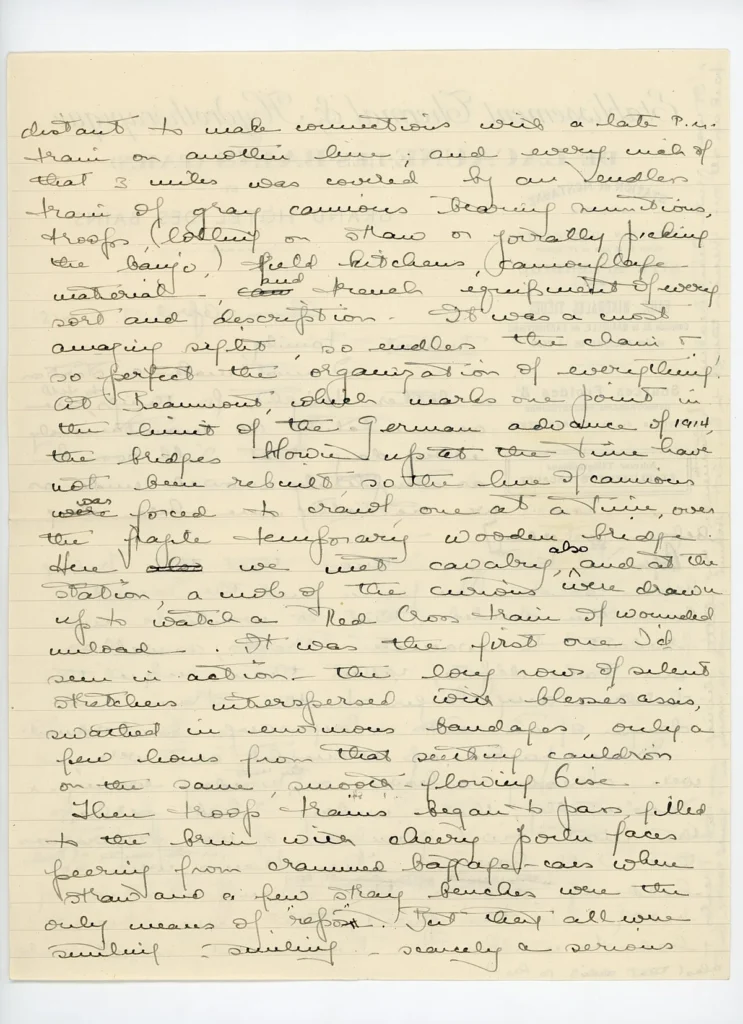 distant to make connections with a late P.M.
train on another line; and every inch of
that 3 miles was covered by an endless
train of gray camions bearing munitions,
troops, (lolling on straw or jovially picking
the banjo,) field kitchens, camouflage
material, and trench equipment of every
sort and description. It was a most
amazing sight, so endless the chain &
so perfect the organization of everything!
At Beaumont, which marks one point in
the limit of the German advance of 1914,
the bridges blown up at the time have
not been rebuilt, so the line of camions
was forced to crawl one at a time, over
the fragile temporary wooden bridge.
Here we met cavalry, also, and at the
station, a mob of the curious were drawn
up to watch a Red Cross train of wounded
unload. It was the first one I'd
seen in action - the long rows of silent
stretchers interspersed with blessés assis,
swathed in enormous bandages, only a
few hours from that seething cauldron
on the same, smooth-flowing Oise.
Then troop trains began to pass, filled
to the brim with cheery poilu faces
peering from crammed baggage-cars where
straw and a few stray benches were the
only means of "repos". But they all were
smiling - smiling - scarcely a serious